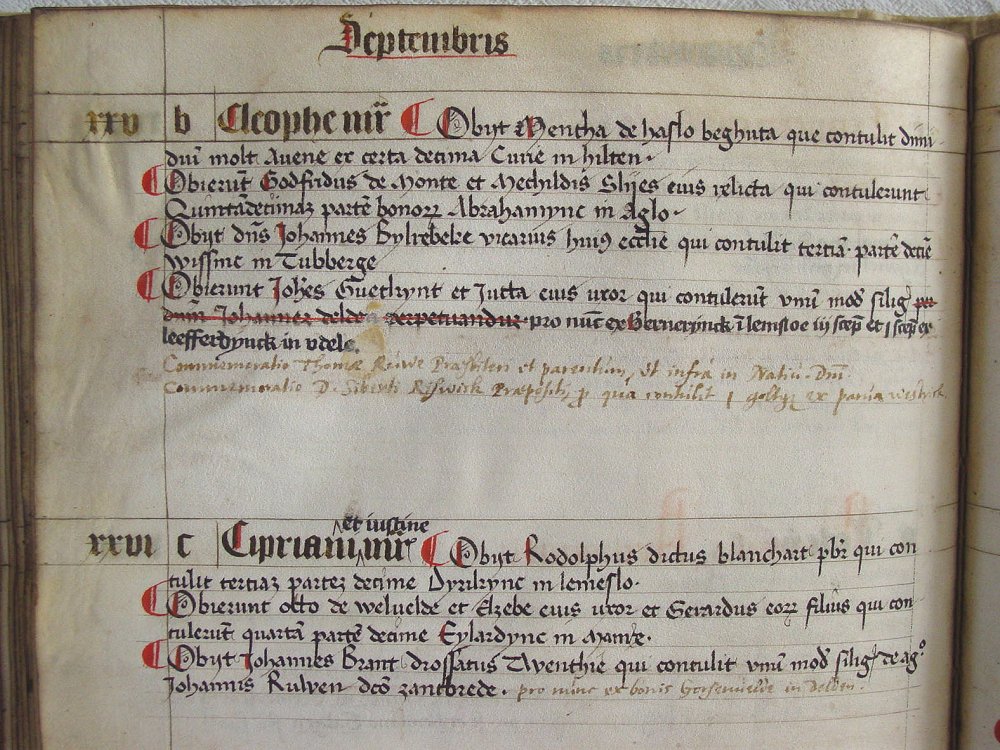 Septembris
xxv b Cleophe mr̄ Obijt Mentha de haslo beghuta que contulit dimi
diū molt Auene ex certa decima Curie in hilten.
Obierūt Godfridus de Monte et Mechildis Slijes eius relicta qui contulerunt
Quintādecimaz partē bonorꝝ Abrahamync in Aglo.
Obijt dn̄s Johannes Byltebeke vicarius huiꝰ ecclie qui contulit tertiā partē decīe
wissinc in Tubberge
Obierunt Joh̄es et Jutta eius uxor qui contulerūt vnū mod̄ siliḡ
Johannes perpetuandus pro nūc ex ī lemsloe iij scep̄ et j scep̄ ex
leefferdynck in vdele.
Commemoratio Thomæ Ruwe et parentum, vt infrà in Natiu. Dn̄i
Commemoratio D. Siberti Riswick Præpositi, p̄ qua contulit j ex
xxvi c Cipriani et iustine mr̄ Obijt Rodolphus dictus blanchart pb̄r qui con
tulit tertiaz partez decime Dyrikync in lemeslo.
Obierunt otto de weluelde et Elzebe eius uxor et Gerardus eorꝝ filius qui con
tulerūt quartā partē decime Eylardync in
Obijt Johannes Brant drossatus Twenthie qui contulit vnū mod̄ siliḡ de ag̊
Johannis Ruwen dc̄o zantbrede. pro nunc ex bonis in Delden.